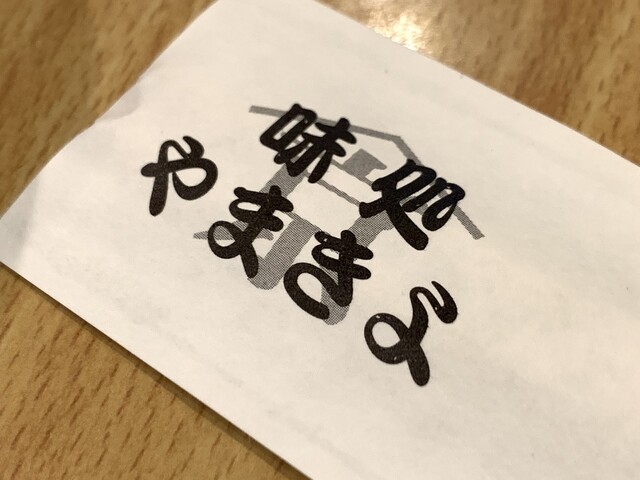 味処
やまきょ